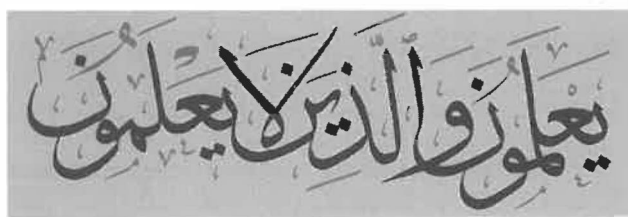 يَعْلَمُونَ وَالَّذِينَ لَا يَعْلَمُونَ